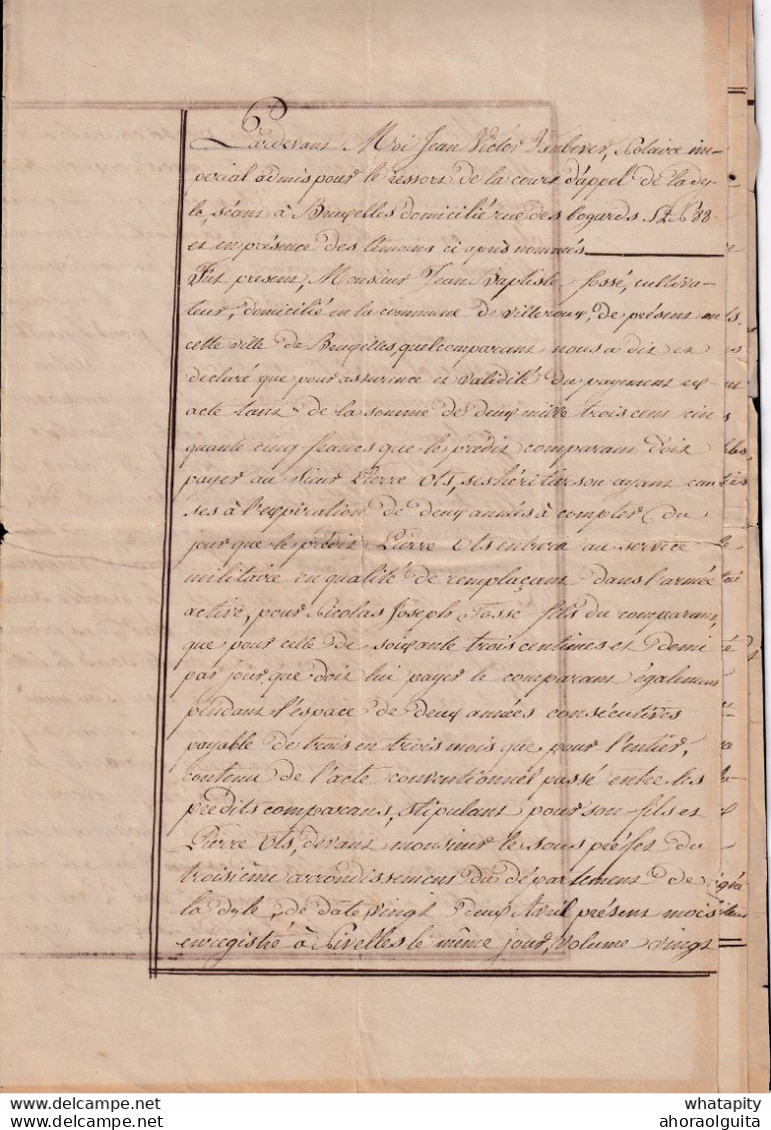 Pardevant Moi Jean Victor Vanbever, Notaire im-
périal admis pour le ressort de la cour d'appel de la dy-
le, séant à Bruxelles domicilié rue des bogards
et en présence des témoins ci après nommés
Fut present, Monsieur Jean Baptiste fossé, cultiva-
teur, domicilié en la commune de Villeroux, de présent en
cette ville de Bruxelles, quel comparant nous a dit et
déclaré que pour assurance et validité du payement et
acte tant de la somme de deux mille trois cent cin
quante cinq francs que le prédit comparant doit
payer au Sieur Pierre Ots, ses héritiers ou ayant cau
ses à l'expiration de deux années à compter du
jour que le prédit Pierre Ots entrera au service
militaire en qualité de remplaçant dans l'armée
active, pour Nicolas Joseph Fossé fils du comparant,
que pour celle de soixante trois centimes et demi
par jour que doit lui payer le comparant également
pendant l'espace de deux années consécutives
payable de trois en trois mois que pour l'entier,
contenu de l'acte conventionnel passé entre les
prédits comparans, stipulant pour son fils et
Pierre Ots, devant monsieur le sous préfet du
troisième arrondissement du département de
la dyle, de date vingt deux Avril présent mois
enregistré à Nivelles le même jour, volume vingt
whatapity
ahoraolguita